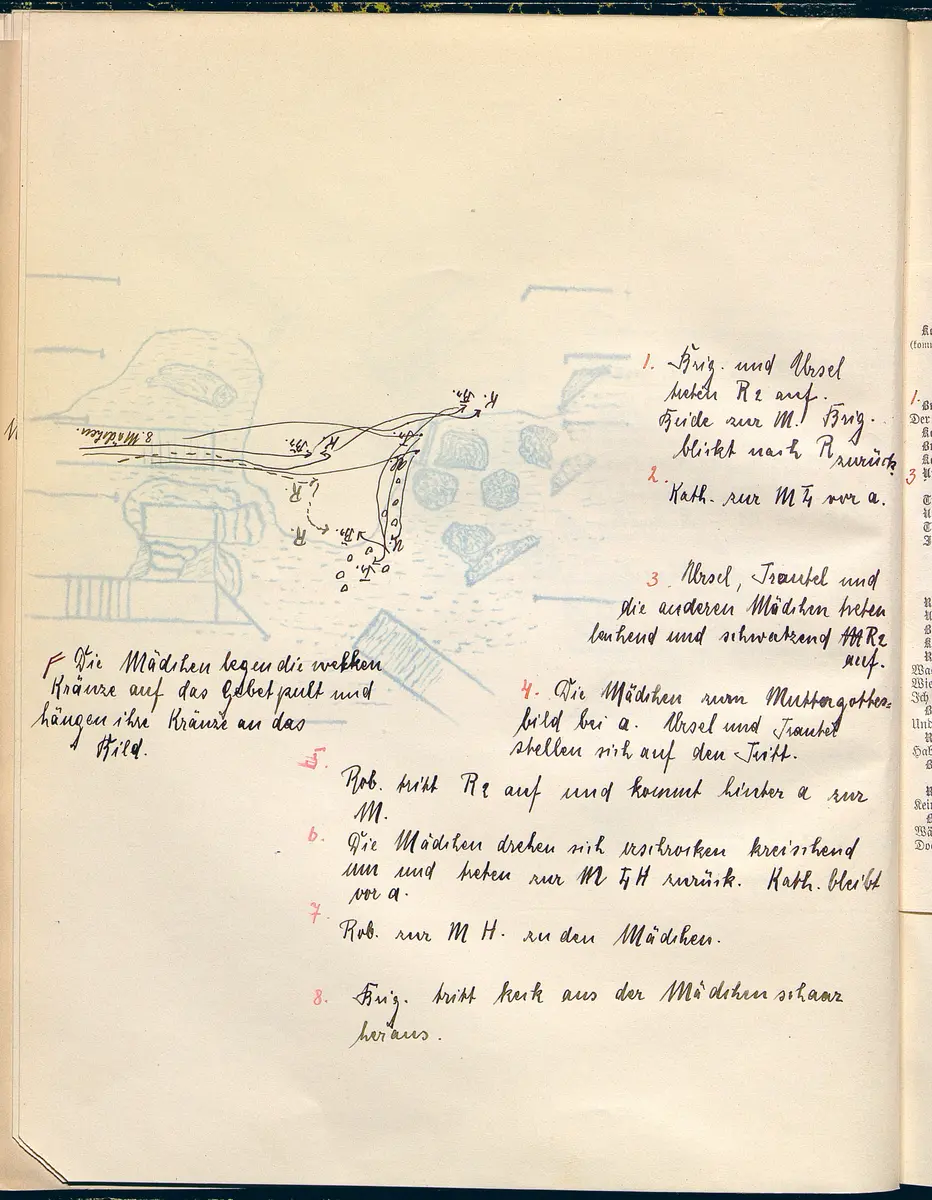 8. Mädchen.
K.
Br.
Br.
K
Tr.
U.
R.
R.
Br.
Tr.
U.
1. Brig. und Ursel
treten R2 auf.
Beide zur M. Brig.
blickt nach R zurück
2.
Kath. zur M L vor a.
3. Ursel, Trautel und
die anderen Mädchen treten
lachend und schwatzend R2
auf.
F Die Mädchen legen die welken
Kränze auf das Gebetpult und
hängen ihre Kränze an das
Bild.
4. Die Mädchen zum Muttergottes=
bild bei a. Ursel und Trautel
stellen sich auf den Tritt.
5.
Rob. tritt R2 auf und kommt hinter a zur
M.
6.
Die Mädchen drehen sich erschrocken kreischend
um und treten zur M L H zurück. Kath. bleibt
vor a.
7.
Rob. zur M H. zu den Mädchen.
8. Brig. tritt keck aus der Mädchenschaar
heraus.
1.
Der
3
Wa
Wie
Ich
Und
Hab
Kein
Wä
Doc